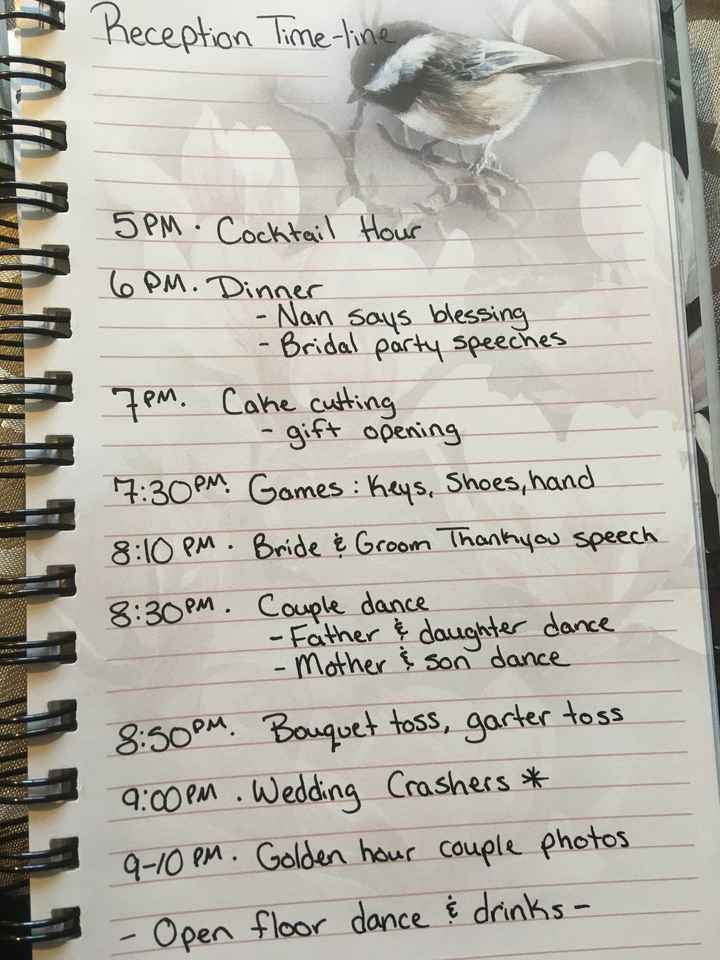 Reception Time-line
5 PM · Cocktail Hour
6 PM. Dinner
- Nan says blessing
- Bridal party speeches
7 PM. Cake cutting
- gift opening
7:30 PM. Games : Keys, Shoes, hand
8:10 PM · Bride & Groom Thankyou speech
8:30 PM. Couple dance
- Father & daughter dance
- Mother & son dance
8:50 PM. Bouquet toss, garter toss
9:00 PM . Wedding Crashers *
9-10 PM · Golden hour couple photos
- Open floor dance & drinks -